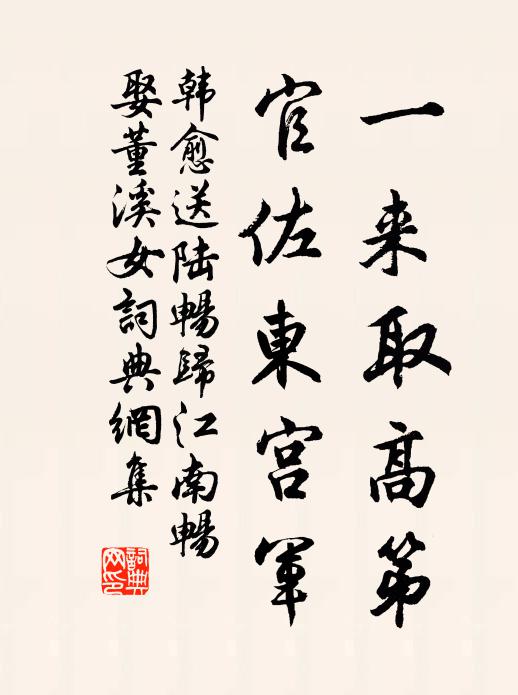 一来取高第
官佐東宫軍
韩愈送陆暢歸江南暢
娶董溪女詞典網集
詞典网印